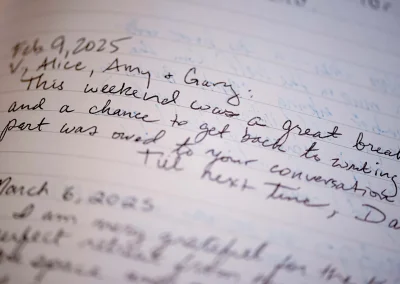 Feb 9, 2025
V, Alice, Amy + Gary:
This weekend was a great break
and a chance to get back to writing
part was owed to your conversation
Til next time, Da
March 6, 2025
I am very grateful for the
perfect retreat from
space and